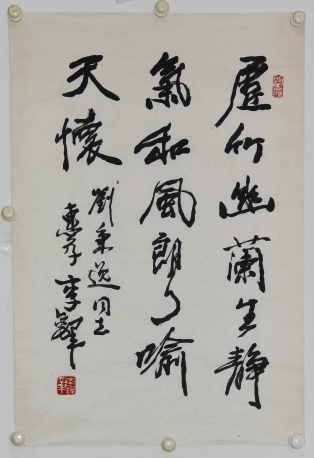 虛竹幽蘭生靜
氣和風朗月喻
天懷
劉秉逸同志
惠存 李鐸